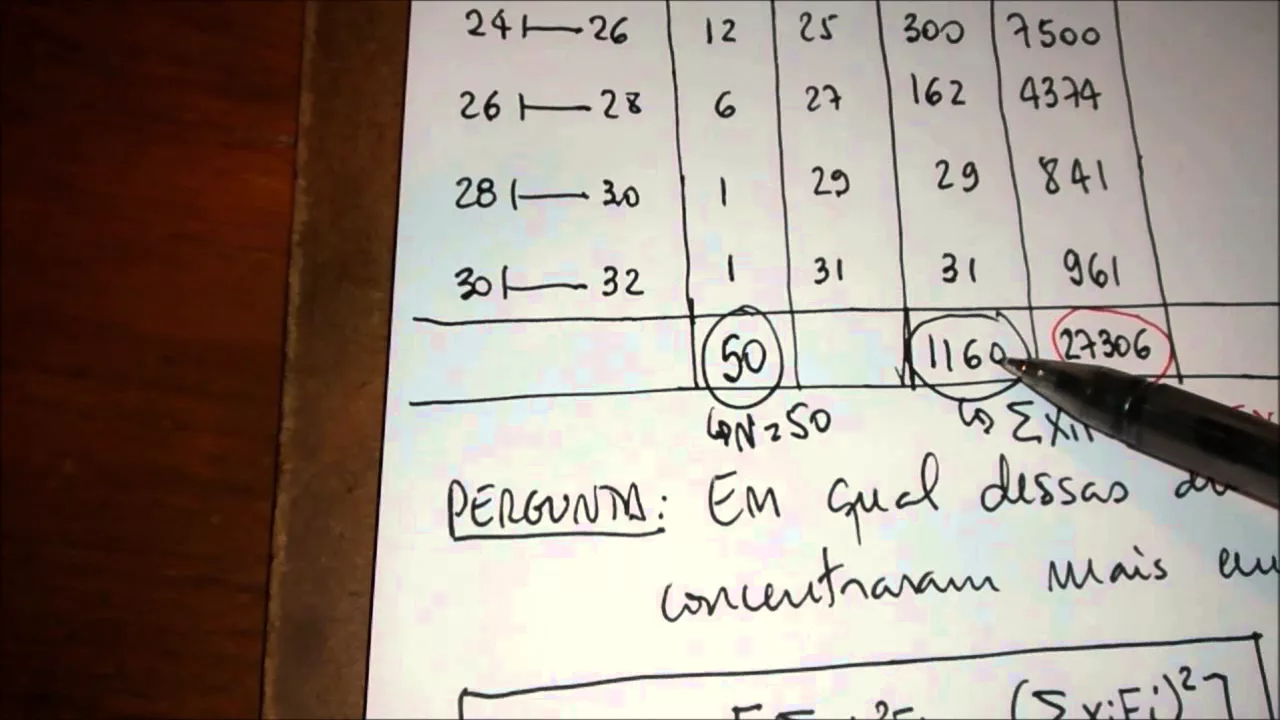 24 |— 26 12 25 300 7500
26 |— 28 6 27 162 4374
28 |— 30 1 29 29 841
30 |— 32 1 31 31 961
50 1160 27306
↳ N = 50 ↳ Σxi
PERGUNTA: Em qual dessas
concentraram mais em
(Σxifi)²]